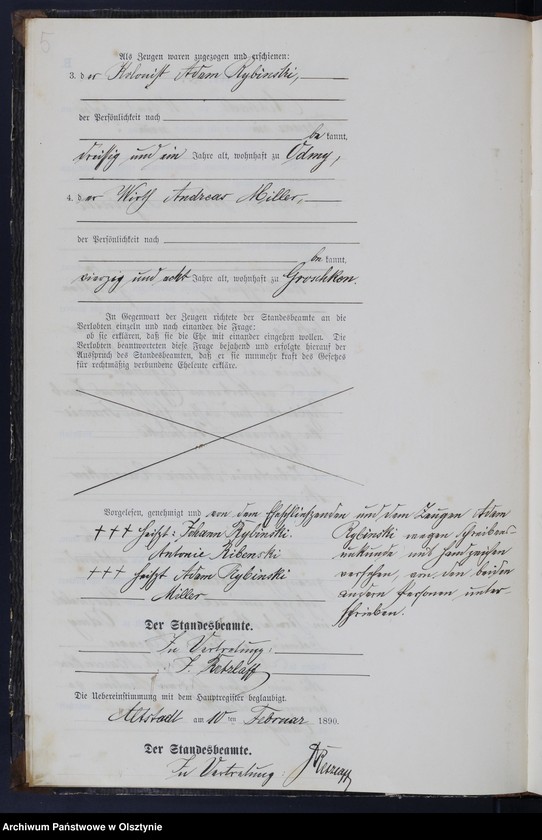 5
Als Zeugen waren zugezogen und erschienen:
3. der Kolonist Adam Rybinski,
der Persönlichkeit nach
be kannt,
dreißig und ein Jahre alt, wohnhaft zu Odmy,
4. der Wirth Andreas Miller,
der Persönlichkeit nach
be kannt,
vierzig und acht Jahre alt, wohnhaft zu Groschken.
In Gegenwart der Zeugen richtete der Standesbeamte an die
Verlobten einzeln und nach einander die Frage:
ob sie erklären, daß sie die Ehe mit einander eingehen wollen. Die
Verlobten beantworteten diese Frage bejahend und erfolgte hierauf der
Ausspruch des Standesbeamten, daß er sie nunmehr kraft des Gesetzes
für rechtmäßig verbundene Eheleute erkläre.
Vorgelesen, genehmigt und von dem Eheschließenden und dem Zeugen Adam
Rybinski wegen Schreibens-
unkunde mit Handzeichen
versehen, von den beiden
andern Personen unter-
schrieben.
+++ heißt: Johann Rybinski.
Antonie Ribenski
+++ heißt Adam Rybinski
Miller
Der Standesbeamte.
In Vertretung:
F. Retzlaff
Die Uebereinstimmung mit dem Hauptregister beglaubigt.
Altstadt am 10 ten Februar 1890.
Der Standesbeamte.
In Vertretung: Retzlaff
Archiwum Państwowe w Olsztynie